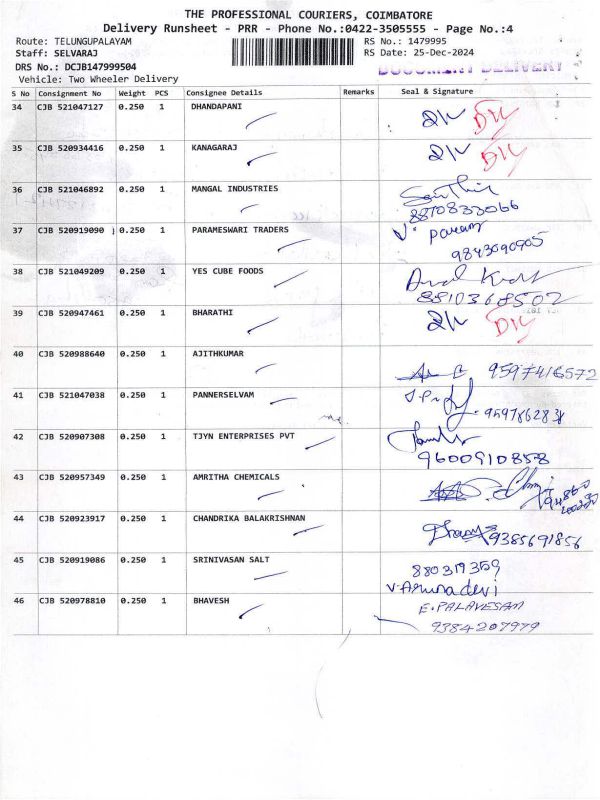 THE PROFESSIONAL COURIERS, COIMBATORE
Delivery Runsheet - PRR - Phone No.:0422-3505555 - Page No.:4
Route: TELUNGUPALAYAM RS No.: 1479995
Staff: SELVARAJ RS Date: 25-Dec-2024
DRS No.: DCJB147999504
DOCUMENT DELIVERY
Vehicle: Two Wheeler Delivery
S No Consignment No Weight PCS Consignee Details Remarks Seal & Signature
34 CJB 521047127 0.250 1 DHANDAPANI
35 CJB 520934416 0.250 1 KANAGARAJ
36 CJB 521046892 0.250 1 MANGAL INDUSTRIES
8870833066
37 CJB 520919090 0.250 1 PARAMESWARI TRADERS V. param
9843090905
38 CJB 521049209 0.250 1 YES CUBE FOODS
8810368502
39 CJB 520947461 0.250 1 BHARATHI
40 CJB 520988640 0.250 1 AJITHKUMAR 9597416572
41 CJB 521047038 0.250 1 PANNERSELVAM
42 CJB 520907308 0.250 1 TJYN ENTERPRISES PVT
9600910858
43 CJB 520957349 0.250 1 AMRITHA CHEMICALS
44 CJB 520923917 0.250 1 CHANDRIKA BALAKRISHNAN 9385691856
45 CJB 520919086 0.250 1 SRINIVASAN SALT 880319359
V Arunadevi
46 CJB 520978810 0.250 1 BHAVESH E. PALAVESAM
9384207979